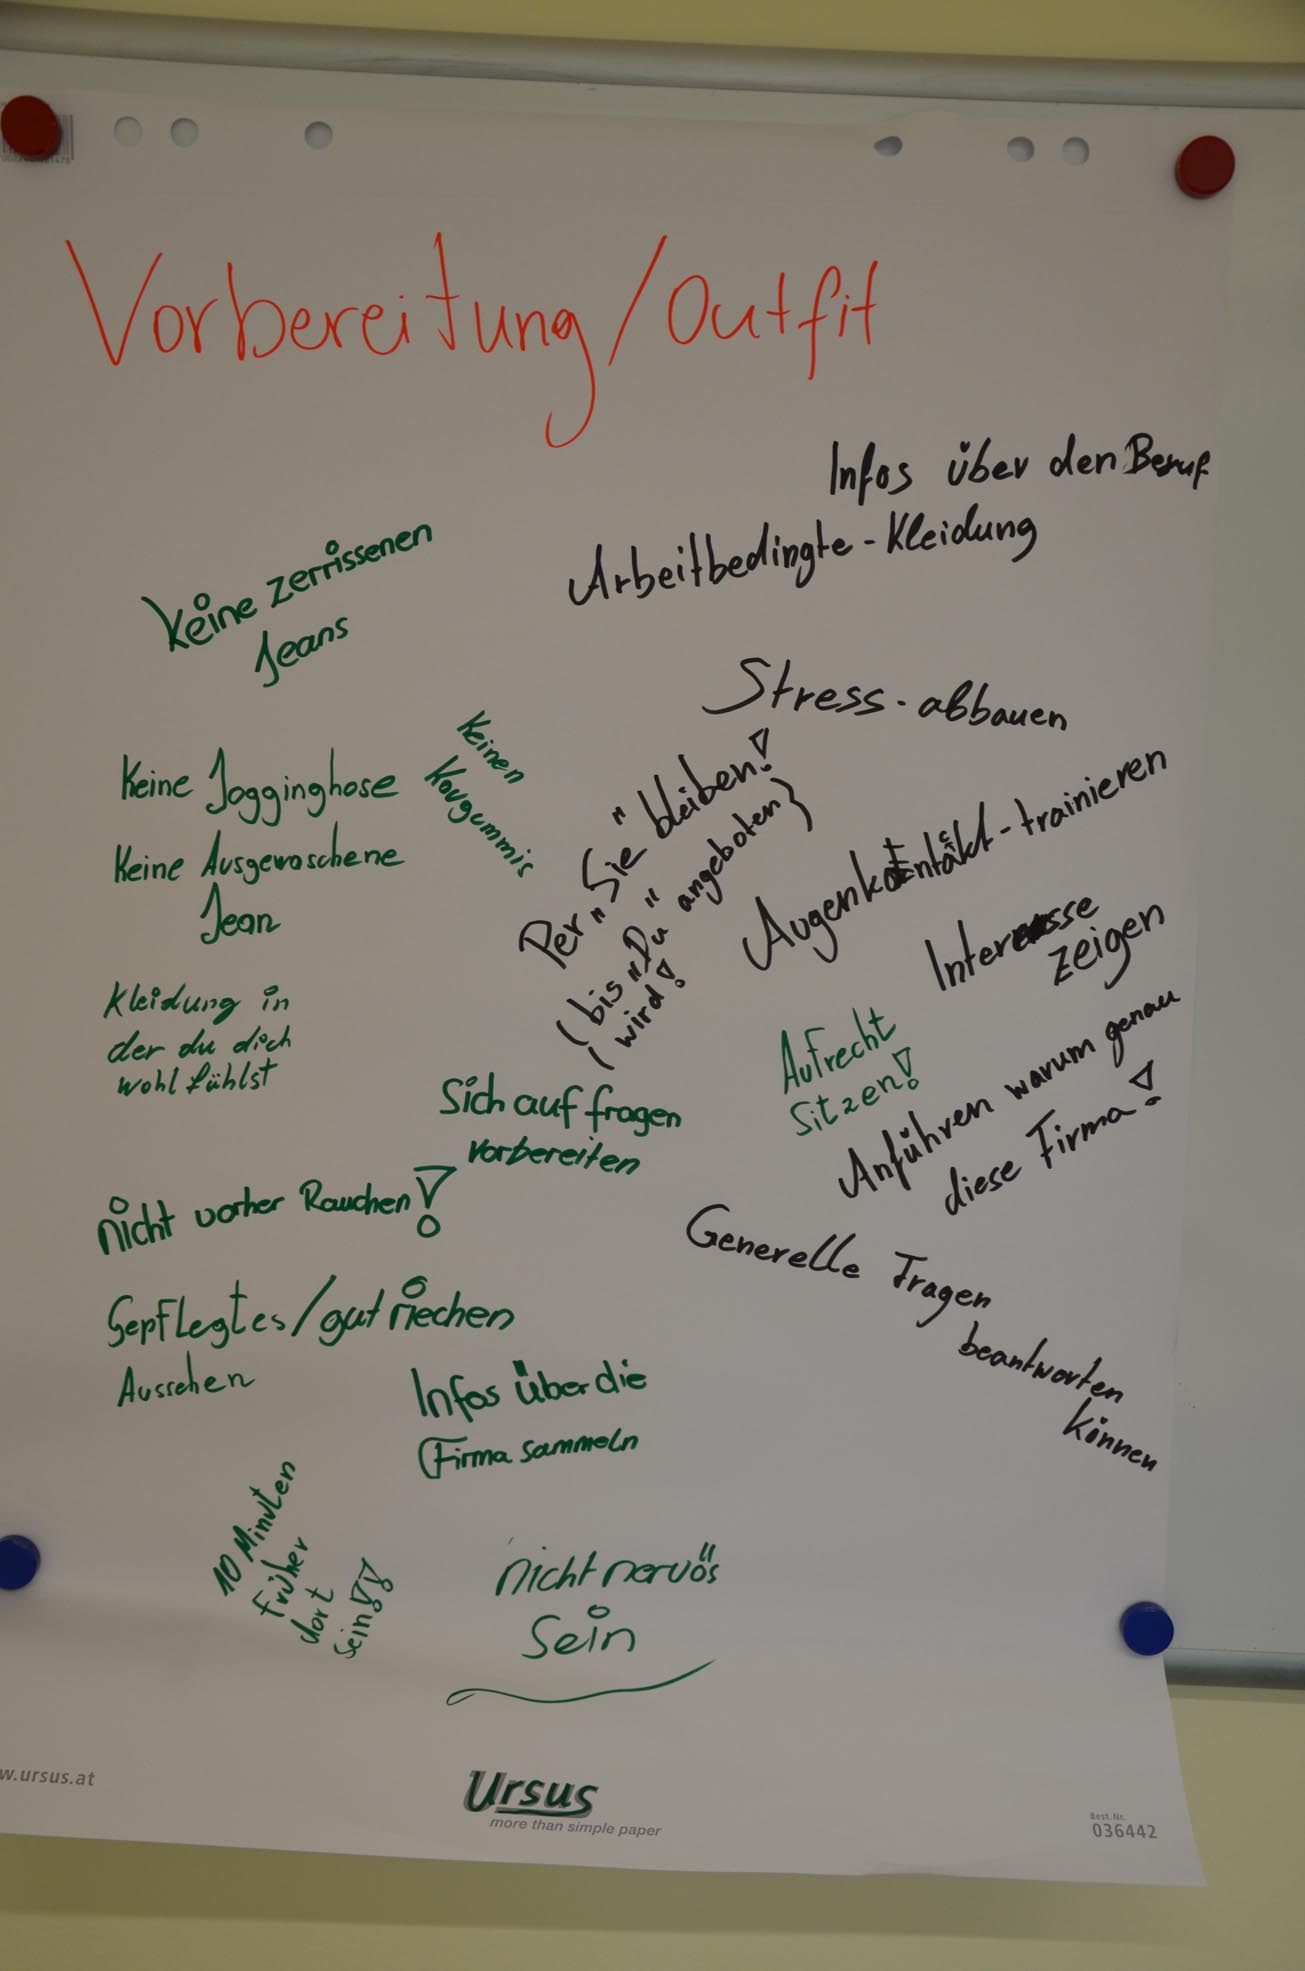 Vorbereitung/Outfit
Infos über den Beruf
Arbeitbedingte-Kleidung
Keine zerrissenen
Jeans
Stress-abbauen
Keinen
Kaugummis
Keine Jogginghose
Keine Ausgewaschene
Jean
Per „Sie" bleiben!
(bis „Du" angeboten)
(wird!
Augenkontakt-trainieren
Interesse
zeigen
Kleidung in
der du dich
wohl fühlst
Aufrecht
Sitzen!
Sich auf fragen
vorbereiten
Anführen warum genau
diese Firma!
nicht vorher Rauchen!
Generelle Fragen
beantworten
können
Gepflegtes/gut riechen
Aussehen
Infos über die
Firma sammeln
10 Minuten
früher
dort
sein!!
nicht nervös
Sein
w.ursus.at
Ursus
more than simple paper
Best. Nr.
036442